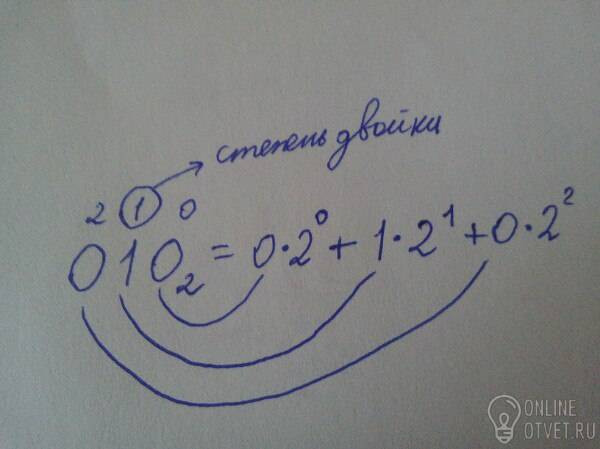 степень двойки
2 1 0
010₂ = 0·2⁰ + 1·2¹ + 0·2²
ONLINE
OTVET.RU